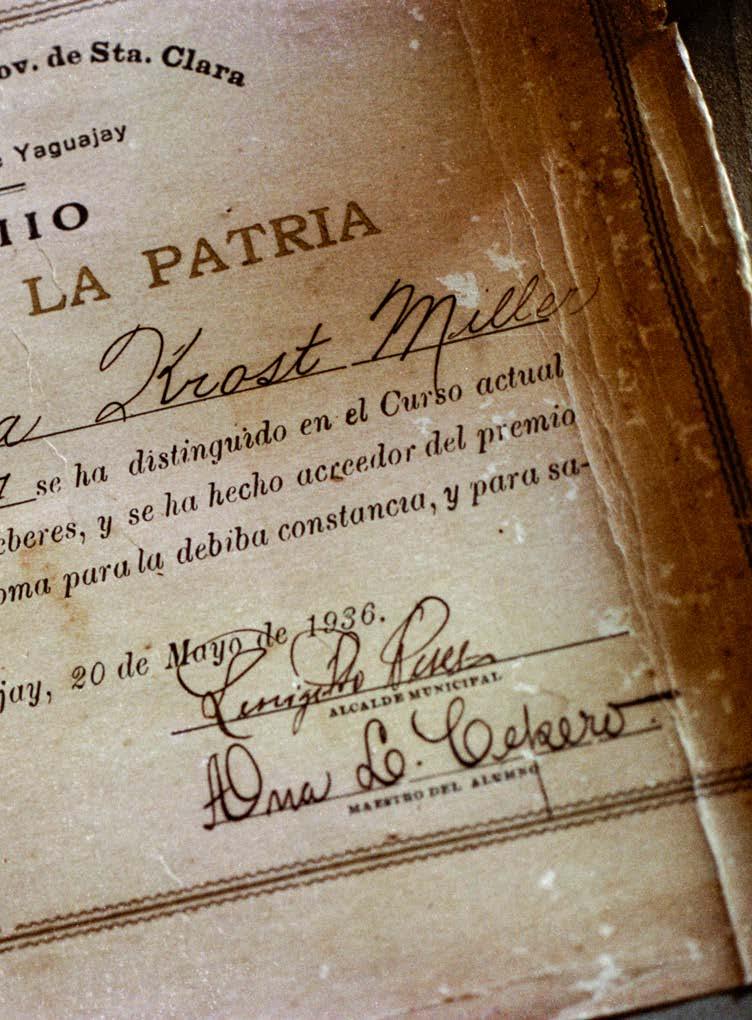 ov. de Sta. Clara
e Yaguajay
IIO
LA PATRIA
a Krost Miller
se ha distinguido en el Curso actual
eberes, y se ha hecho acreedor del premio
oma para la debiba constancia, y para sa-
jay, 20 de Mayo de 1936.
ALCALDE MUNICIPAL
Ana L.
MAESTRO DEL ALUMNO